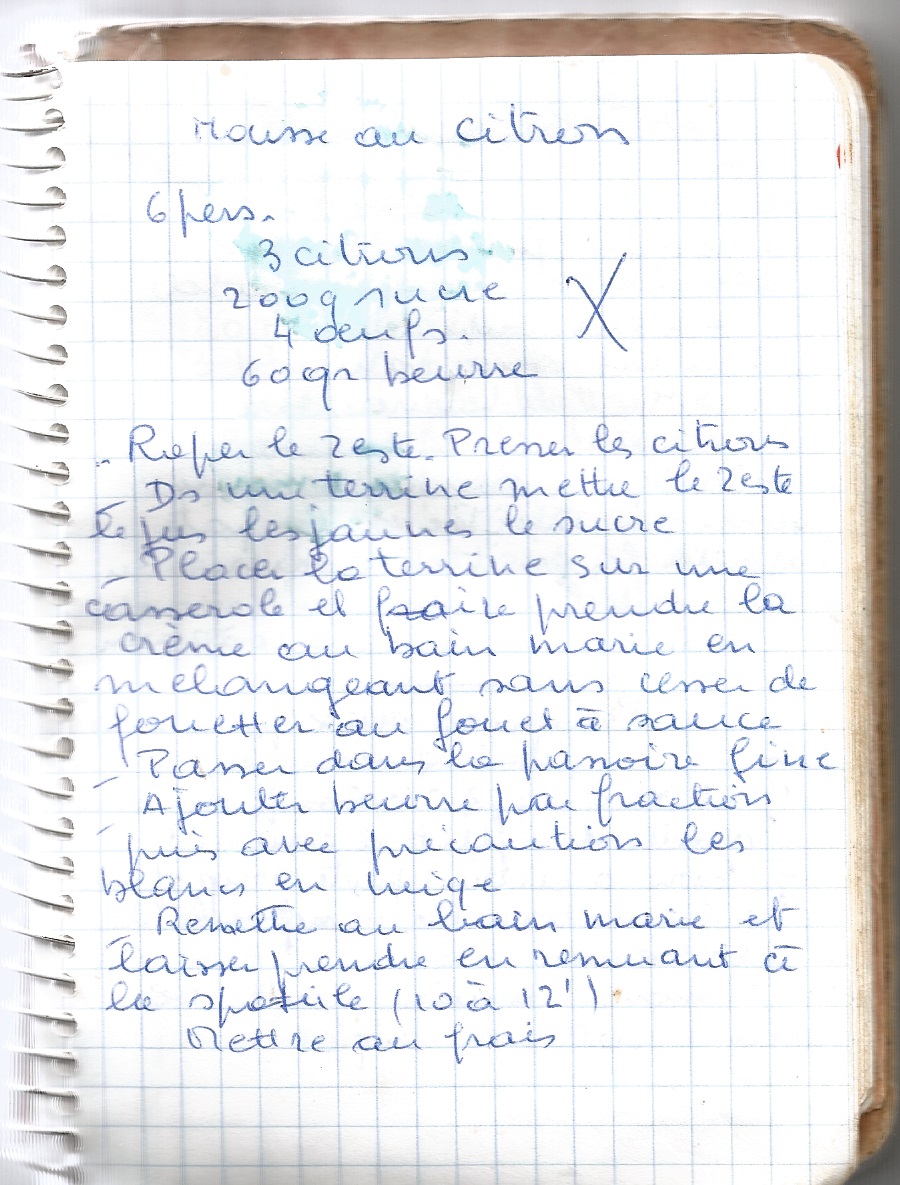 Mousse au citron
6 pers.
3 citrons
200g sucre
4 oeufs.
60gr beurre
X
- Raper le zeste. Presser les citrons
Ds une terrine mettre le zeste
le jus les jaunes le sucre
- Placer la terrine sur une
casserole et faire prendre la
crème au bain marie en
melangeant sans cesser de
fouetter au fouet à sauce
- Passer dans la passoire fine
- Ajouter beurre par fraction
puis avec précaution les
blancs en neige
- Remettre au bain marie et
laisser prendre en remuant à
la spatule (10 à 12')
Mettre au frais